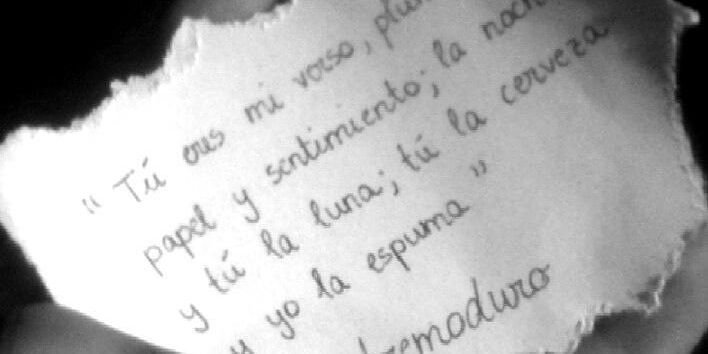 "Tú eres mi verso, plu
papel y sentimiento; la noch
y tú la luna; tú la cerveza
y yo la espuma"
tremoduro